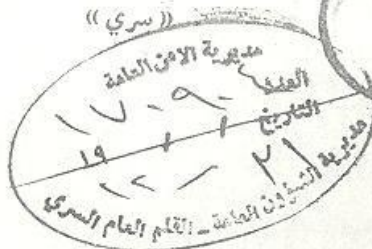 (( سري ))
مديرية الامن العامة
العدد
١٧٠٩٠
التاريخ
١٩ / /
٢١ - ١٢
مديرية الشؤون العامة - القلم العام السري